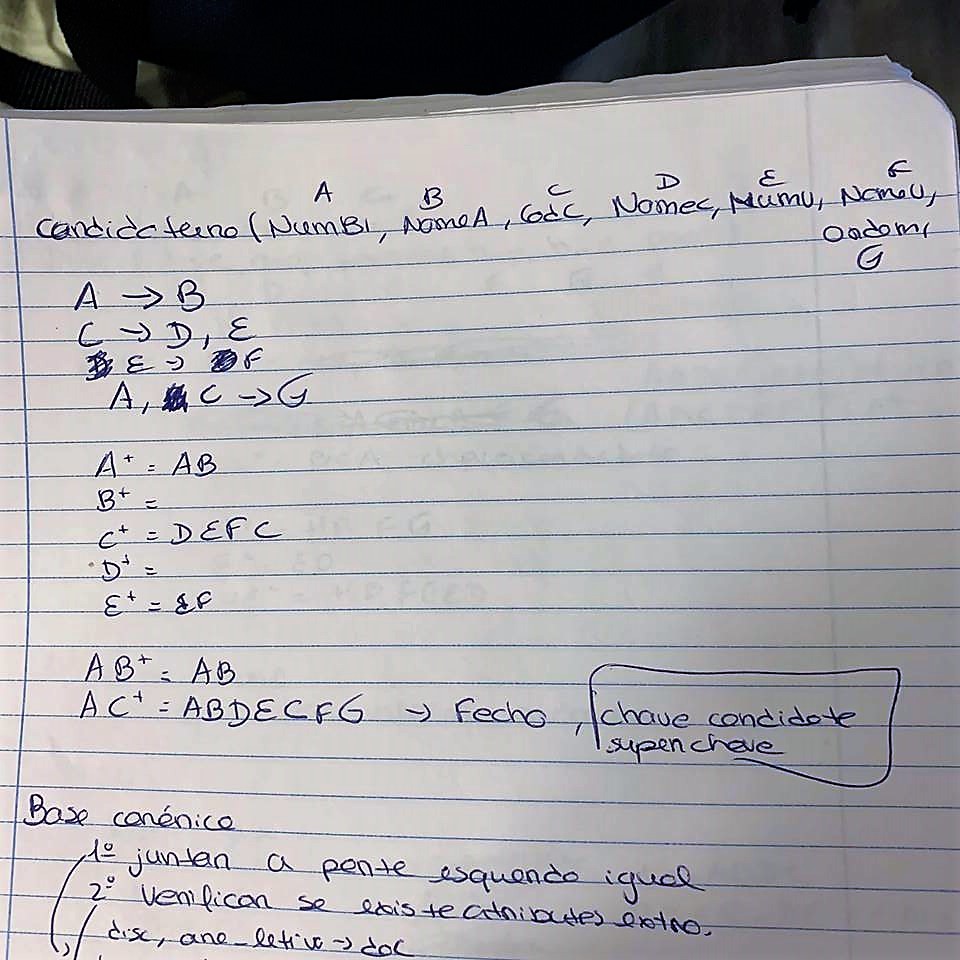 A B C D E F
Candidaterno (NumBI, NomeA, CodC, NomeC, NumU, NomeU,
G
A → B
C → D, E
E → F
A, C → G
A+ = AB
B+ =
C+ = DEFC
D+ =
E+ = EF
AB+ = AB
AC+ = ABDECFG → Fecho, chave candidate
superchave
Base canónica
1º juntar a parte esquerda igual
2º Verificar se existe atributos extra.
disc, ano_letivo → doc